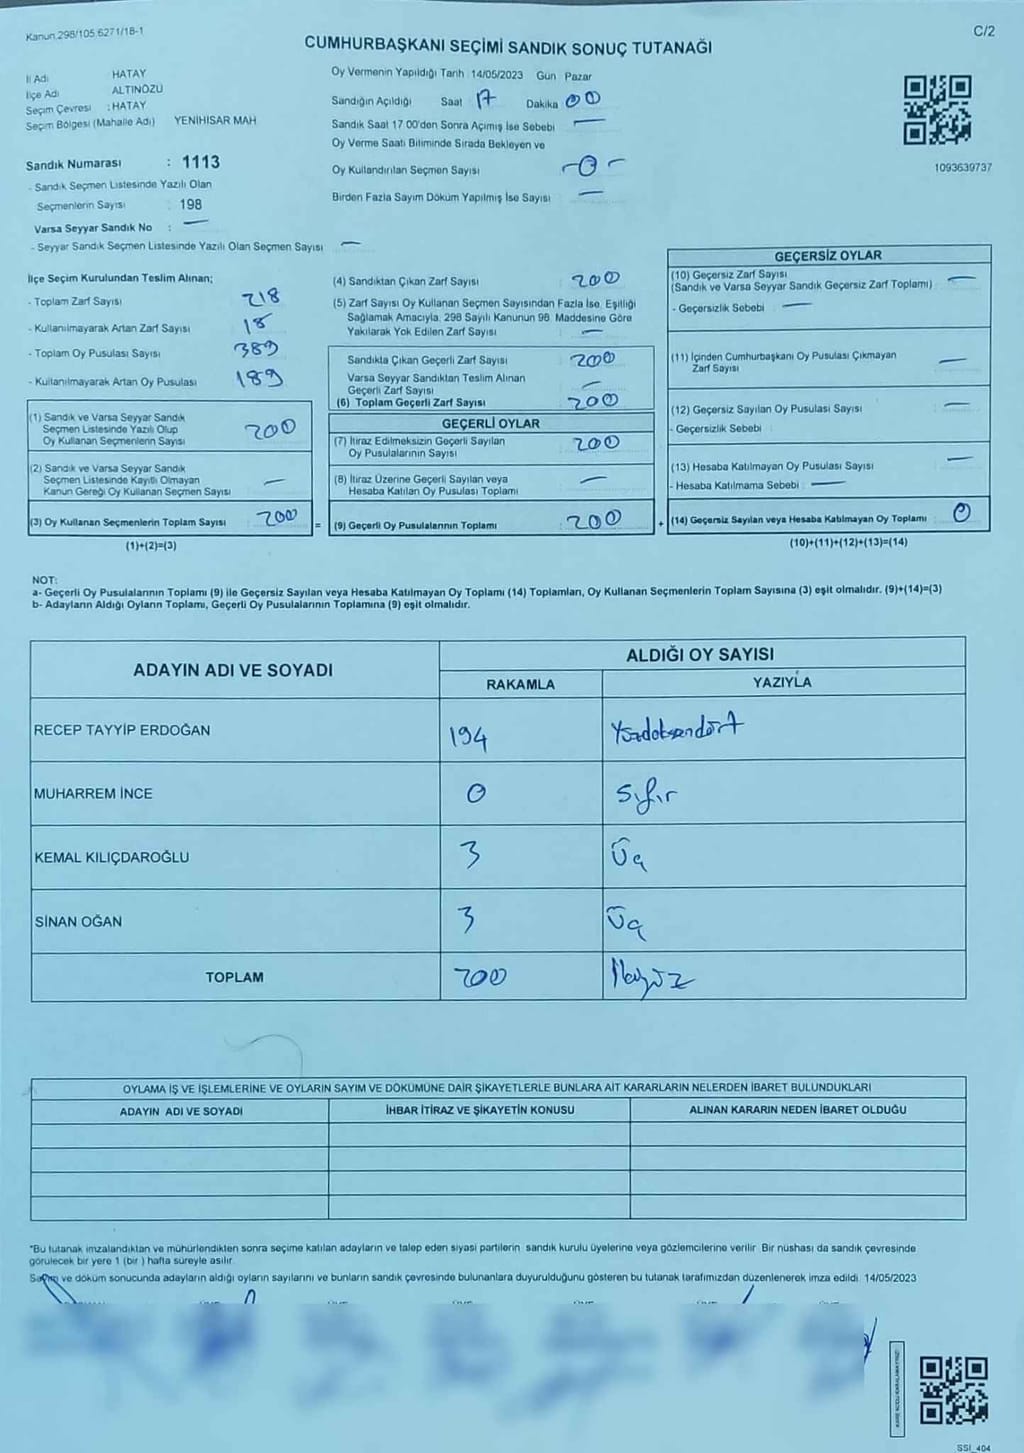 Kanun.298/105.6271/18-1
C/2
CUMHURBAŞKANI SEÇİMİ SANDIK SONUÇ TUTANAĞI
İl Adı HATAY
İlçe Adı ALTINÖZÜ
Seçim Çevresi :HATAY
Seçim Bölgesi (Mahalle Adı) YENİHİSAR MAH
Sandık Numarası : 1113
- Sandık Seçmen Listesinde Yazılı Olan
Seçmenlerin Sayısı 198
Varsa Seyyar Sandık No : —
- Seyyar Sandık Seçmen Listesinde Yazılı Olan Seçmen Sayısı —
Oy Vermenin Yapıldığı Tarih 14/05/2023 Gün Pazar
Sandığın Açıldığı Saat 17 Dakika 00
Sandık Saat 17 00'den Sonra Açımış İse Sebebi —
Oy Verme Saati Bitiminde Sırada Bekleyen ve
Oy Kullandırılan Seçmen Sayısı -0-
Birden Fazla Sayım Döküm Yapılmış İse Sayısı —
1093639737
İlçe Seçim Kurulundan Teslim Alınan;
- Toplam Zarf Sayısı 218
- Kullanılmayarak Artan Zarf Sayısı 18
- Toplam Oy Pusulası Sayısı 389
- Kullanılmayarak Artan Oy Pusulası 189
(1) Sandık ve Varsa Seyyar Sandık
Seçmen Listesinde Yazılı Olup
Oy Kullanan Seçmenlerin Sayısı 200
(2) Sandık ve Varsa Seyyar Sandık
Seçmen Listesinde Kayıtlı Olmayan
Kanun Gereği Oy Kullanan Seçmen Sayısı —
(3) Oy Kullanan Seçmenlerin Toplam Sayısı 200
(1)+(2)=(3)
=
(4) Sandıktan Çıkan Zarf Sayısı 200
(5) Zarf Sayısı Oy Kullanan Seçmen Sayısından Fazla İse, Eşitliği
Sağlamak Amacıyla, 298 Sayılı Kanunun 98 Maddesine Göre
Yakılarak Yok Edilen Zarf Sayısı —
Sandıkta Çıkan Geçerli Zarf Sayısı 200
Varsa Seyyar Sandıktan Teslim Alınan
Geçerli Zarf Sayısı —
(6) Toplam Geçerli Zarf Sayısı 200
GEÇERLİ OYLAR
(7) İtiraz Edilmeksizin Geçerli Sayılan
Oy Pusulalarının Sayısı 200
(8) İtiraz Üzerine Geçerli Sayılan veya
Hesaba Katılan Oy Pusulası Toplamı —
(9) Geçerli Oy Pusulalarının Toplamı 200
+
GEÇERSİZ OYLAR
(10) Geçersiz Zarf Sayısı
(Sandık ve Varsa Seyyar Sandık Geçersiz Zarf Toplamı) —
- Geçersizlik Sebebi —
(11) İçinden Cumhurbaşkanı Oy Pusulası Çıkmayan
Zarf Sayısı —
(12) Geçersiz Sayılan Oy Pusulası Sayısı —
- Geçersizlik Sebebi
(13) Hesaba Katılmayan Oy Pusulası Sayısı —
- Hesaba Katılmama Sebebi —
(14) Geçersiz Sayılan veya Hesaba Katılmayan Oy Toplamı 0
(10)+(11)+(12)+(13)=(14)
NOT:
a- Geçerli Oy Pusulalarının Toplamı (9) ile Geçersiz Sayılan veya Hesaba Katılmayan Oy Toplamı (14) Toplamları, Oy Kullanan Seçmenlerin Toplam Sayısına (3) eşit olmalıdır. (9)+(14)=(3)
b- Adayların Aldığı Oyların Toplamı, Geçerli Oy Pusulalarının Toplamına (9) eşit olmalıdır.
ADAYIN ADI VE SOYADI
ALDIĞI OY SAYISI
RAKAMLA YAZIYLA
RECEP TAYYİP ERDOĞAN 194 Yüzdoksandört
MUHARREM İNCE 0 Sıfır
KEMAL KILIÇDAROĞLU 3 Üç
SİNAN OĞAN 3 Üç
TOPLAM 200 İkiyüz
OYLAMA İŞ VE İŞLEMLERİNE VE OYLARIN SAYIM VE DÖKÜMÜNE DAİR ŞİKAYETLERLE BUNLARA AİT KARARLARIN NELERDEN İBARET BULUNDUKLARI
ADAYIN ADI VE SOYADI İHBAR İTİRAZ VE ŞİKAYETİN KONUSU ALINAN KARARIN NEDEN İBARET OLDUĞU
*Bu tutanak imzalandıktan ve mühürlendikten sonra seçime katılan adayların ve talep eden siyasi partilerin sandık kurulu üyelerine veya gözlemcilerine verilir Bir nüshası da sandık çevresinde
görülecek bir yere 1 (bir ) hafta süreyle asılır.
Sayım ve döküm sonucunda adayların aldığı oyların sayılarını ve bunların sandık çevresinde bulunanlara duyurulduğunu gösteren bu tutanak tarafımızdan düzenlenerek imza edildi 14/05/2023
SSI_404